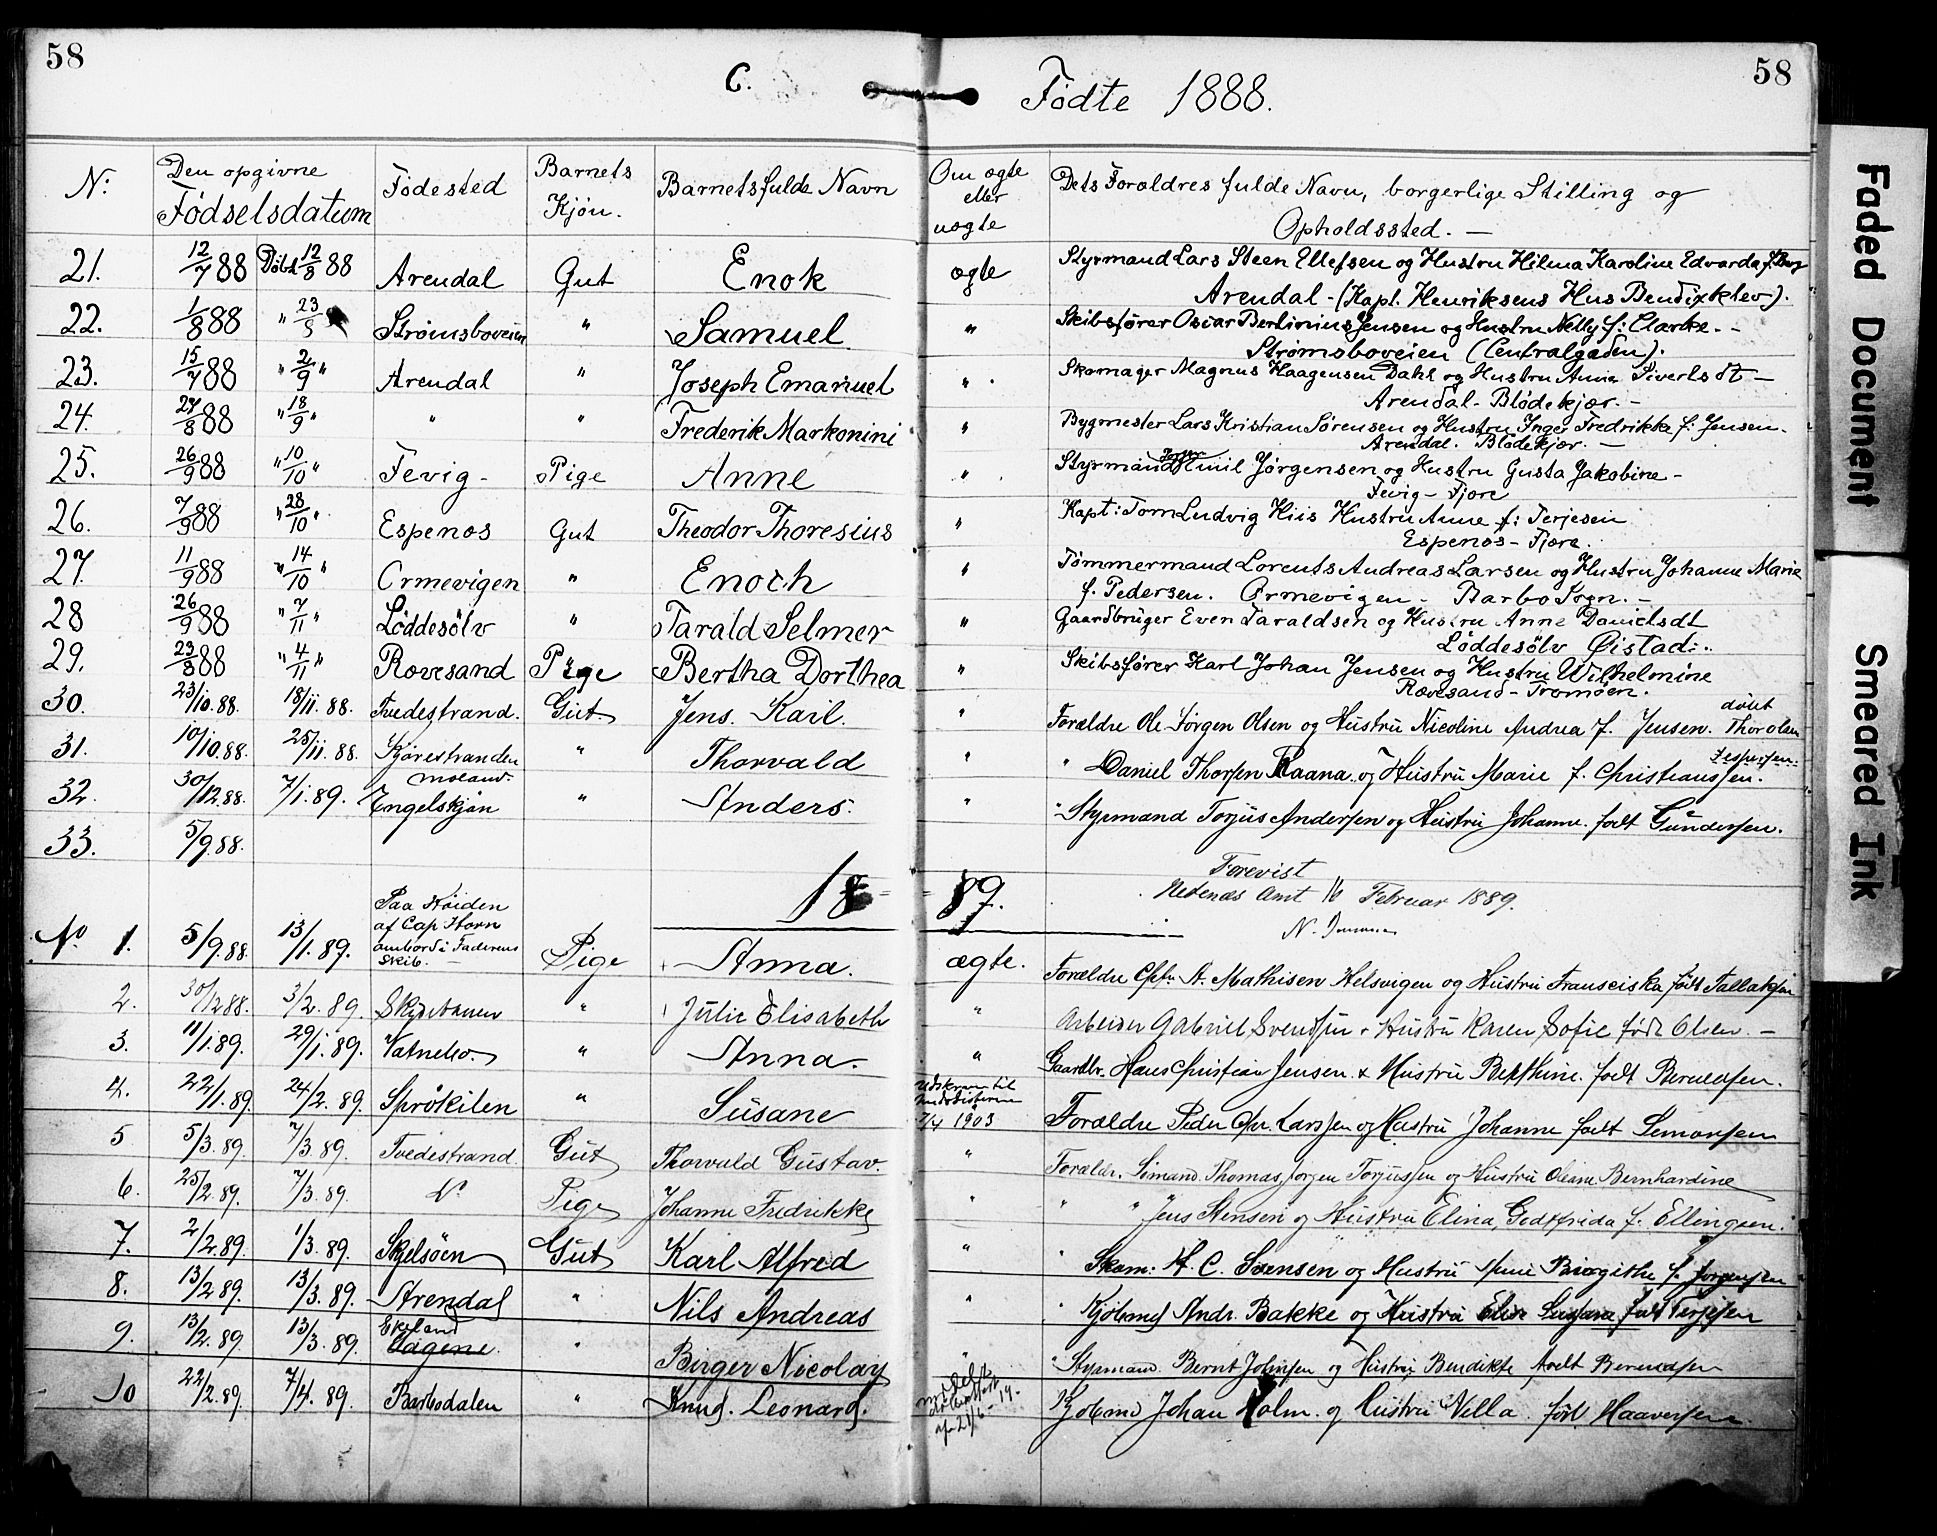 58
C.
Födte 1888.
58
No:
Den opgivne Födselsdatum
Födested
Barnets Kjön.
Barnets fulde Navn
Om ægte eller uægte
Dets Forældres fulde Navn, borgerlige Stilling og Opholdssted. —
21. 12/7 88 Döbt 12/8 88 Arendal Gut Enok ægte Styrmand Lars Steen Ellefsen og Hustru Hilma Karoline Edvarda f. Berg
Arendal - (Kapt. Henriksens Hus Bendixklev).
22. 1/8 88 " 23/8 Strömsboveien " Samuel " Skibsförer Oscar Bertinius Jensen og Hustru Nelly f: Clarke. -
Strömsboveien (Centralgaden).
23. 15/7 88 " 2/9 " Arendal " Joseph Emanuel " Skomager Magnus Haagensen Dahl og Hustru Anne Sivertsdt —
Arendal - Blödekjær. -
24. 27/8 88 " 18/9 " " " Frederik Markonini " Bygmester Lars Kristian Sörensen og Hustru Inger Fredrikke f: Jensen.
Arendal. Blödekjær. —
25. 26/9 88 " 10/10 " Fevig - Pige Anne " Styrmand Emil Jørgensen og Hustru Gusta Jakobine -
Fevig - Fjære
26. 7/9 88 " 28/10 " Espenes Gut Theodor Thoresius " Kapt: Tom Ludvig Hiis Hustru Anne f: Terjesen
Espenes - Fjære.
27. 11/9 88 " 14/10 " Ormevigen " Enoch " Tömmermand Lorents Andreas Larsen og Hustru Johanne Marie
f. Pedersen. Ormevigen - Barbo Sogn. -
28 26/9 88 " 7/11 " Löddesölv " Tarald Selmer " Gaardbruger Even Taraldsen og Hustru Anne Danielsdt
Löddesölv Öistad:.
29. 23/8 88 " 4/11 " Rævesand Pige Bertha Dorthea " Skibsförer Karl Johan Jensen og Hustru Wilhelmine
Rævesand - Tromöen.
30. 23/10.88. 18/11.88. Tvedestrand. Gut. Jens. Karl. " Forældre Ole Jörgen Olsen og Hustru Nicoline Andrea f. Jensen.
31. 10/10.88. 25/11.88. Kjörestranden " Thorvald " " Daniel Thorsen Raana. og Hustru Marie f. Christianssen.
32. 30/12.88. 7/1.89. Engelskjön " Anders. " " Styrmand Torjus Andersen og Hustru Johanne. født Gundersen.
33. 5/9.88.
1889.
Forevist
Nedenæs Amt 16 Februar 1889.
No 1. 5/9.88. 13/1.89. Paa Høiden af Cap Horn ombord i Faderens Skib. - Pige Anna. ægte. Forældre Cpt. A. Mathisen Helsvigen og Hustru Franseiska født Tallaksen
2. 30/12.88. 3/2.89. " Julie Elisabeth " Arbeider Gabriel Svendsen & Hustru Karen Sofie född Olsen. -
3. 11/1.89. 29/1.89. " Anna. " Gaardbr. Hans Christian Jensen & Hustru Berthine. født Berntsen.
4. 22/1.89. 24/2.89. Spròkilen " Susane 7/4 1903 Forældre Peder Chr. Larssen og Hustru Johanne født Simonsen
5 5/3.89. 7/3.89. Tvedestrand. Gut Thorvald Gustav. " Forældr. Sömand. Thomas Jørgen Torjussen og Hustru Oleane Bernhardine
6. 25/2.89. 7/3.89. Do Pige Johanne Fredrikke " " " Jens Stensen og Hustru Elina, Gedtfrida f. Ellingsen.
7. 2/2.89. 1/3.89. Skjelsöen Gut Karl Alfred " " Skom: H. C. Svensen og Hustru Anne Birgithe f. Jorgensen
8. 13/2.89. 13/3.89. Arendal " Nils Andreas " " Kjöbmd Andr. Bakke og Hustru Elise Susane født Terjesen
9. 13/2.89. 13/3.89. Ekeland " Birger Nicolay " " Styrmand. Bernt Johnsen og Hustru Bendikte født Berendsen
10 22/2.89. 7/4.89. Barbodalen " Knud. Leonard. Kjöbmd Johan Holm. og Hustru Villa. född Haaversen
Faded Document
Smeared Ink